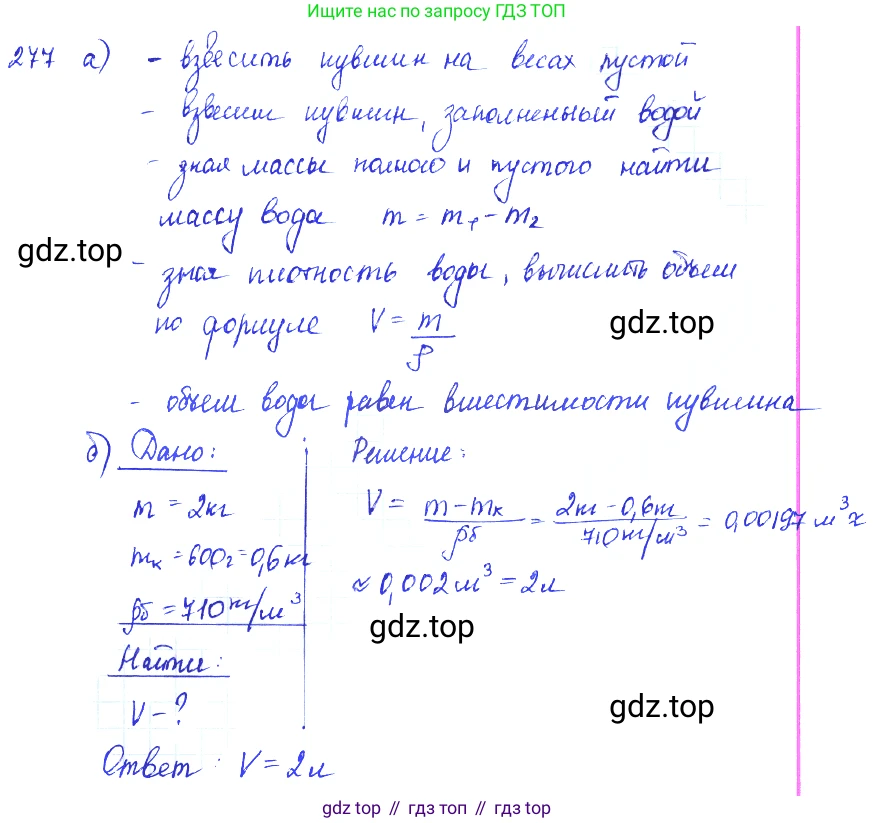 Ищите нас по запросу ГДЗ ТОП
277 а) - взвесить кувшин на весах пустой
- взвесим кувшин, заполненный водой
- зная массы полного и пустого найти
массу воды m = m₁ - m₂
gdz.top
- зная плотность воды, вычислить объем
по формуле V = m/ρ
gdz.top
- объем воды равен вместимости кувшина
б) Дано: Решение:
m = 2кг V = (m - mк)/ρб = (2кг - 0,6кг)/(710 кг/м³) = 0,00197 м³ ≈
mк = 600г = 0,6 кг ≈ 0,002 м³ = 2л
ρб = 710 кг/м³
gdz.top
Найти:
V - ?
gdz.top
Ответ: V = 2л
gdz top // гдз топ // gdz top